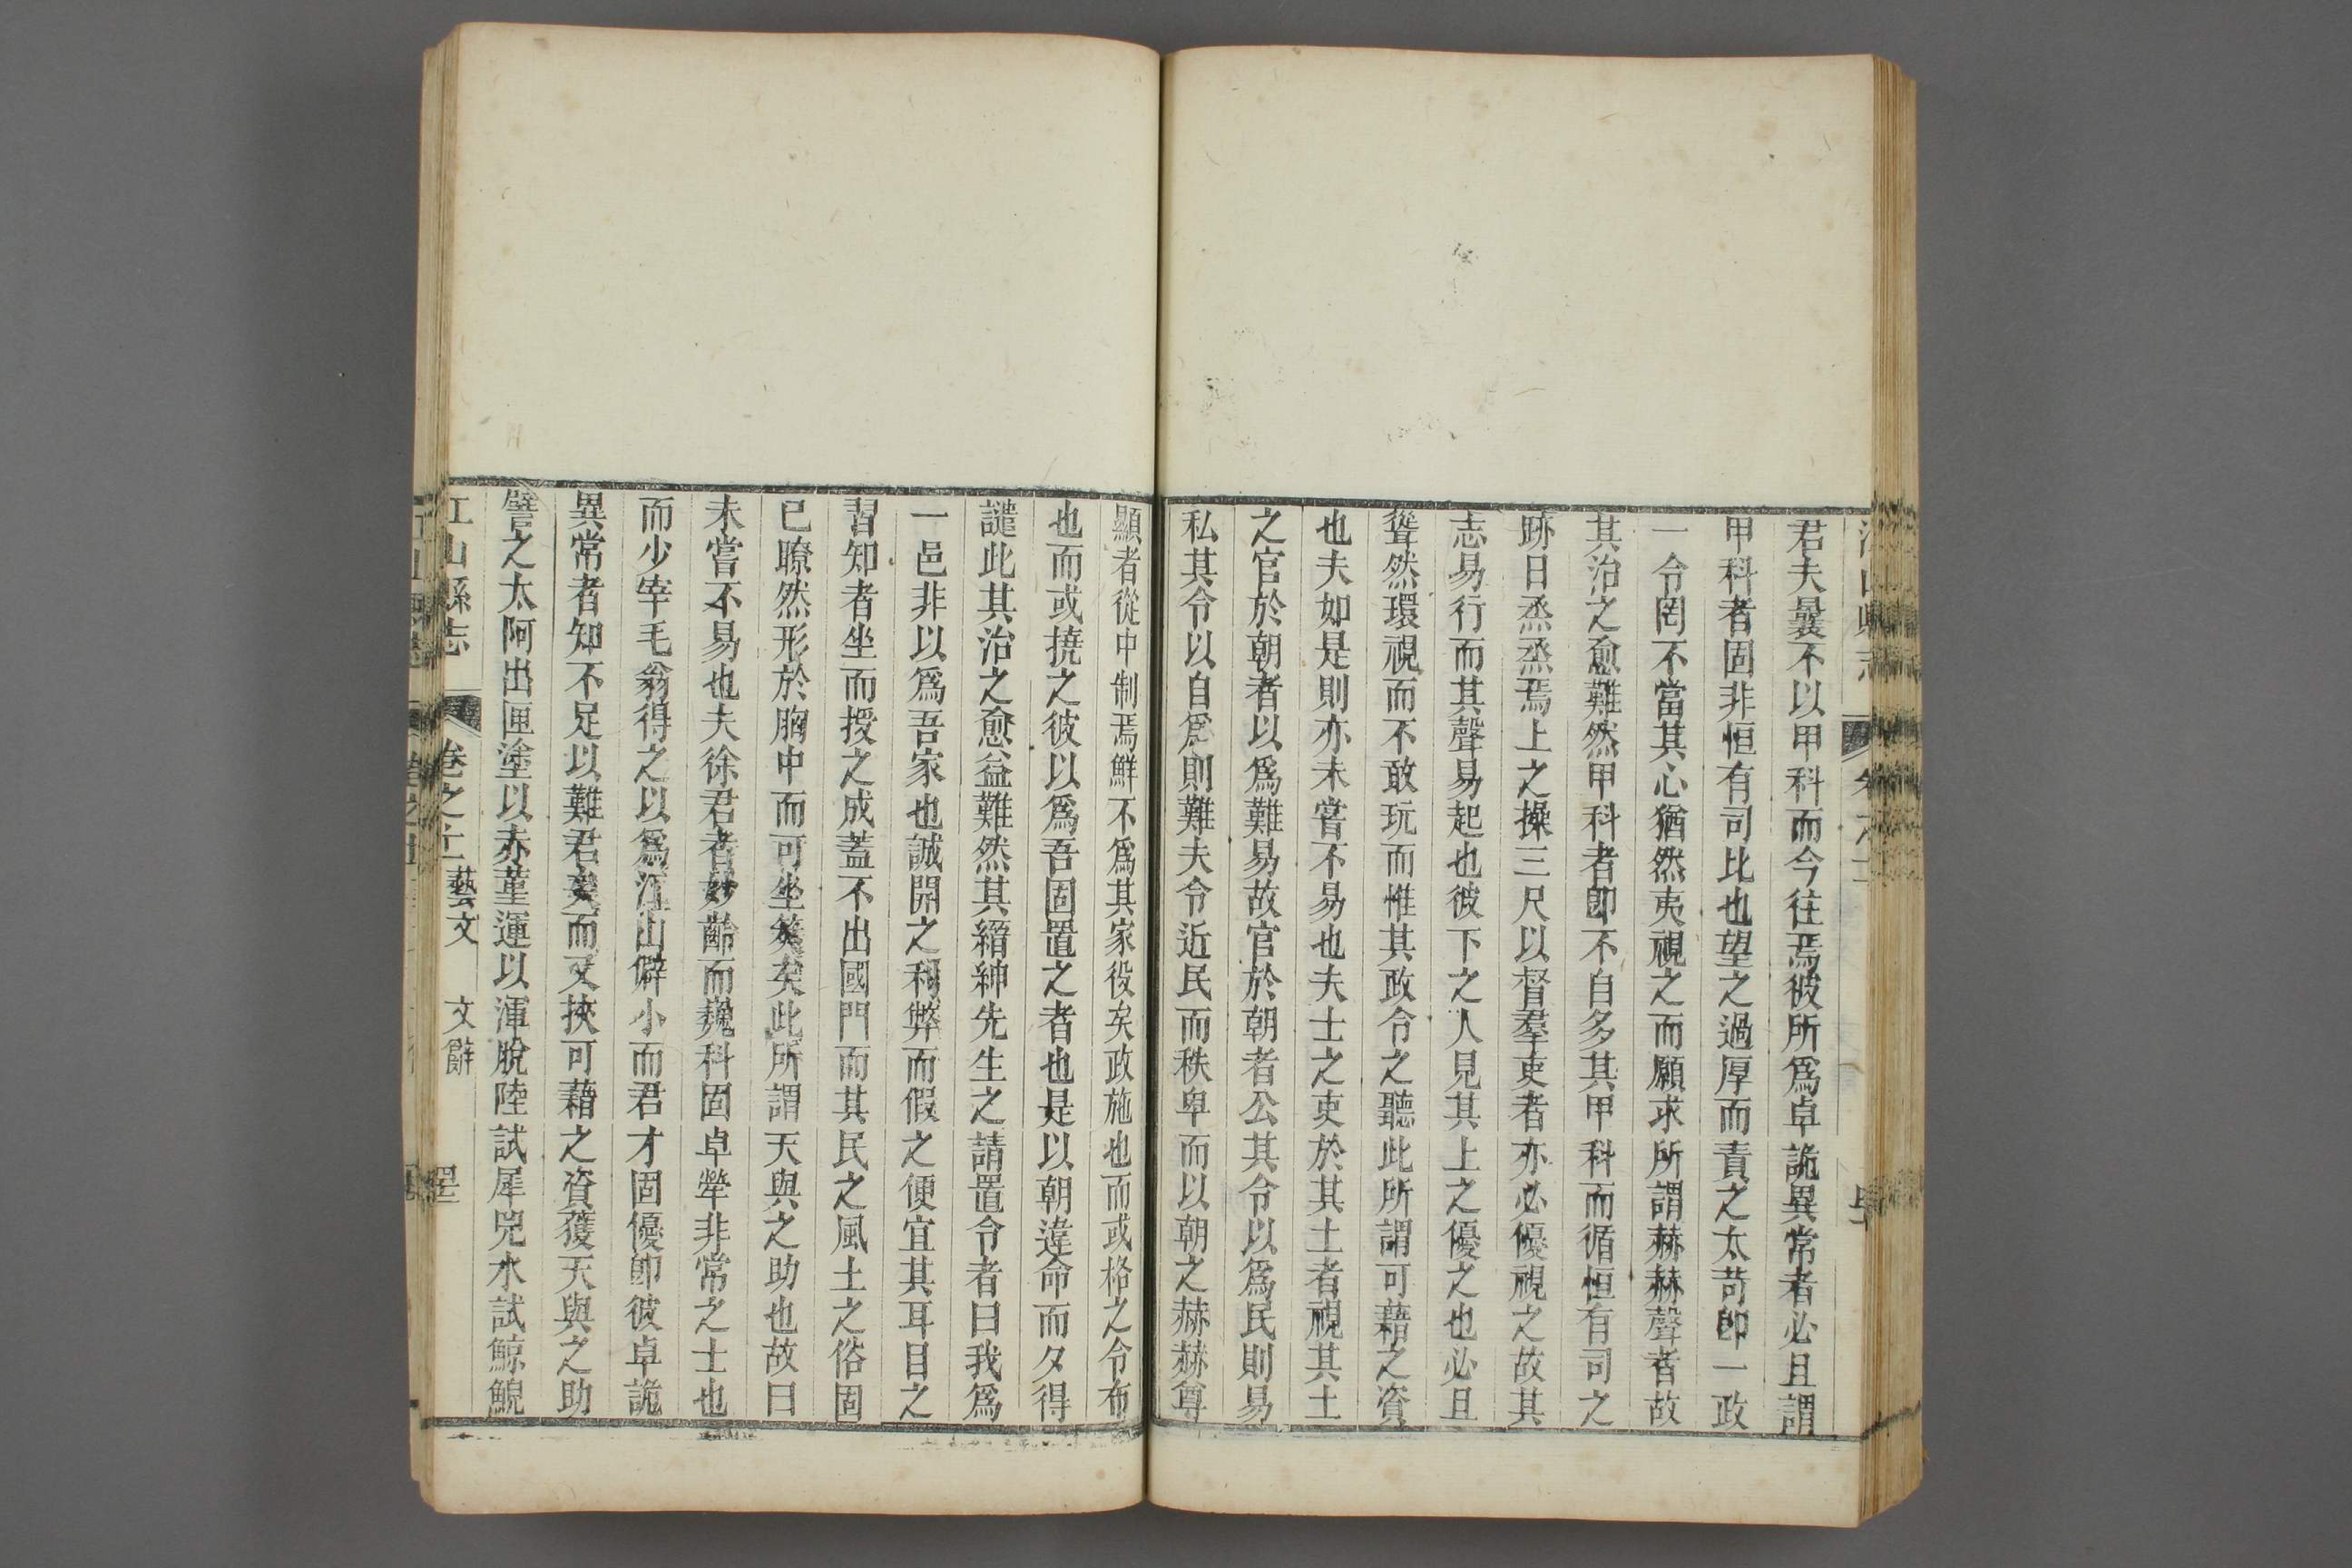 君夫曩不以甲科而今往焉彼所爲卓詭異常者必且謂
甲科者固非恒有司比也望之過厚而責之太苛卽一政
一令罔不當其心猶然夷視之而願求所謂赫赫聲者故
其治之愈難然甲科者卽不自多其甲科而循恒有司之
跡日烝烝焉上之操三尺以督羣吏者亦必優視之故其
志易行而其聲易起也彼下之人見其上之優之也必且
聳然環視而不敢玩而惟其政令之聽此所謂可藉之資
也夫如是則亦未嘗不易也夫士之吏於其土者視其土
之官於朝者以爲難易故官於朝者公其令以爲民則易
私其令以自爲則難夫令近民而秩卑而以朝之赫赫尊
顯者從中制焉鮮不爲其家役矣政施也而或格之令布
也而或撓之彼以爲吾固置之者也是以朝違命而夕得
譴此其治之愈益難然其縉紳先生之請置令者曰我爲
一邑非以爲吾家也誠開之利弊而假之便宜其耳目之
習知者坐而授之成蓋不出國門而其民之風土之俗固
已瞭然形於胸中而可坐筴矣此所謂天與之助也故曰
未嘗不易也夫徐君者妙齡而巍科固卓犖非常之士也
而少宰毛翁得之以爲江山僻小而君才固優卽彼卓詭
異常者知不足以難君矣而又挾可藉之資獲天與之助
譬之太阿出匣塗以赤堇運以渾脫陸試犀兕水試鯨鯢
江山縣志 卷之十一 藝文 文辭